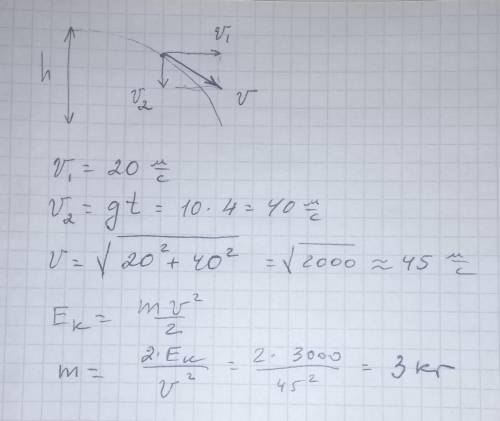 h
v₁
v₂
v
v₁ = 20 м/с
v₂ = gt = 10 · 4 = 40 м/с
v = √(20² + 40²) = √2000 ≈ 45 м/с
Eк = mv²/2
m = 2·Eк/v² = 2·3000/45² = 3 кг